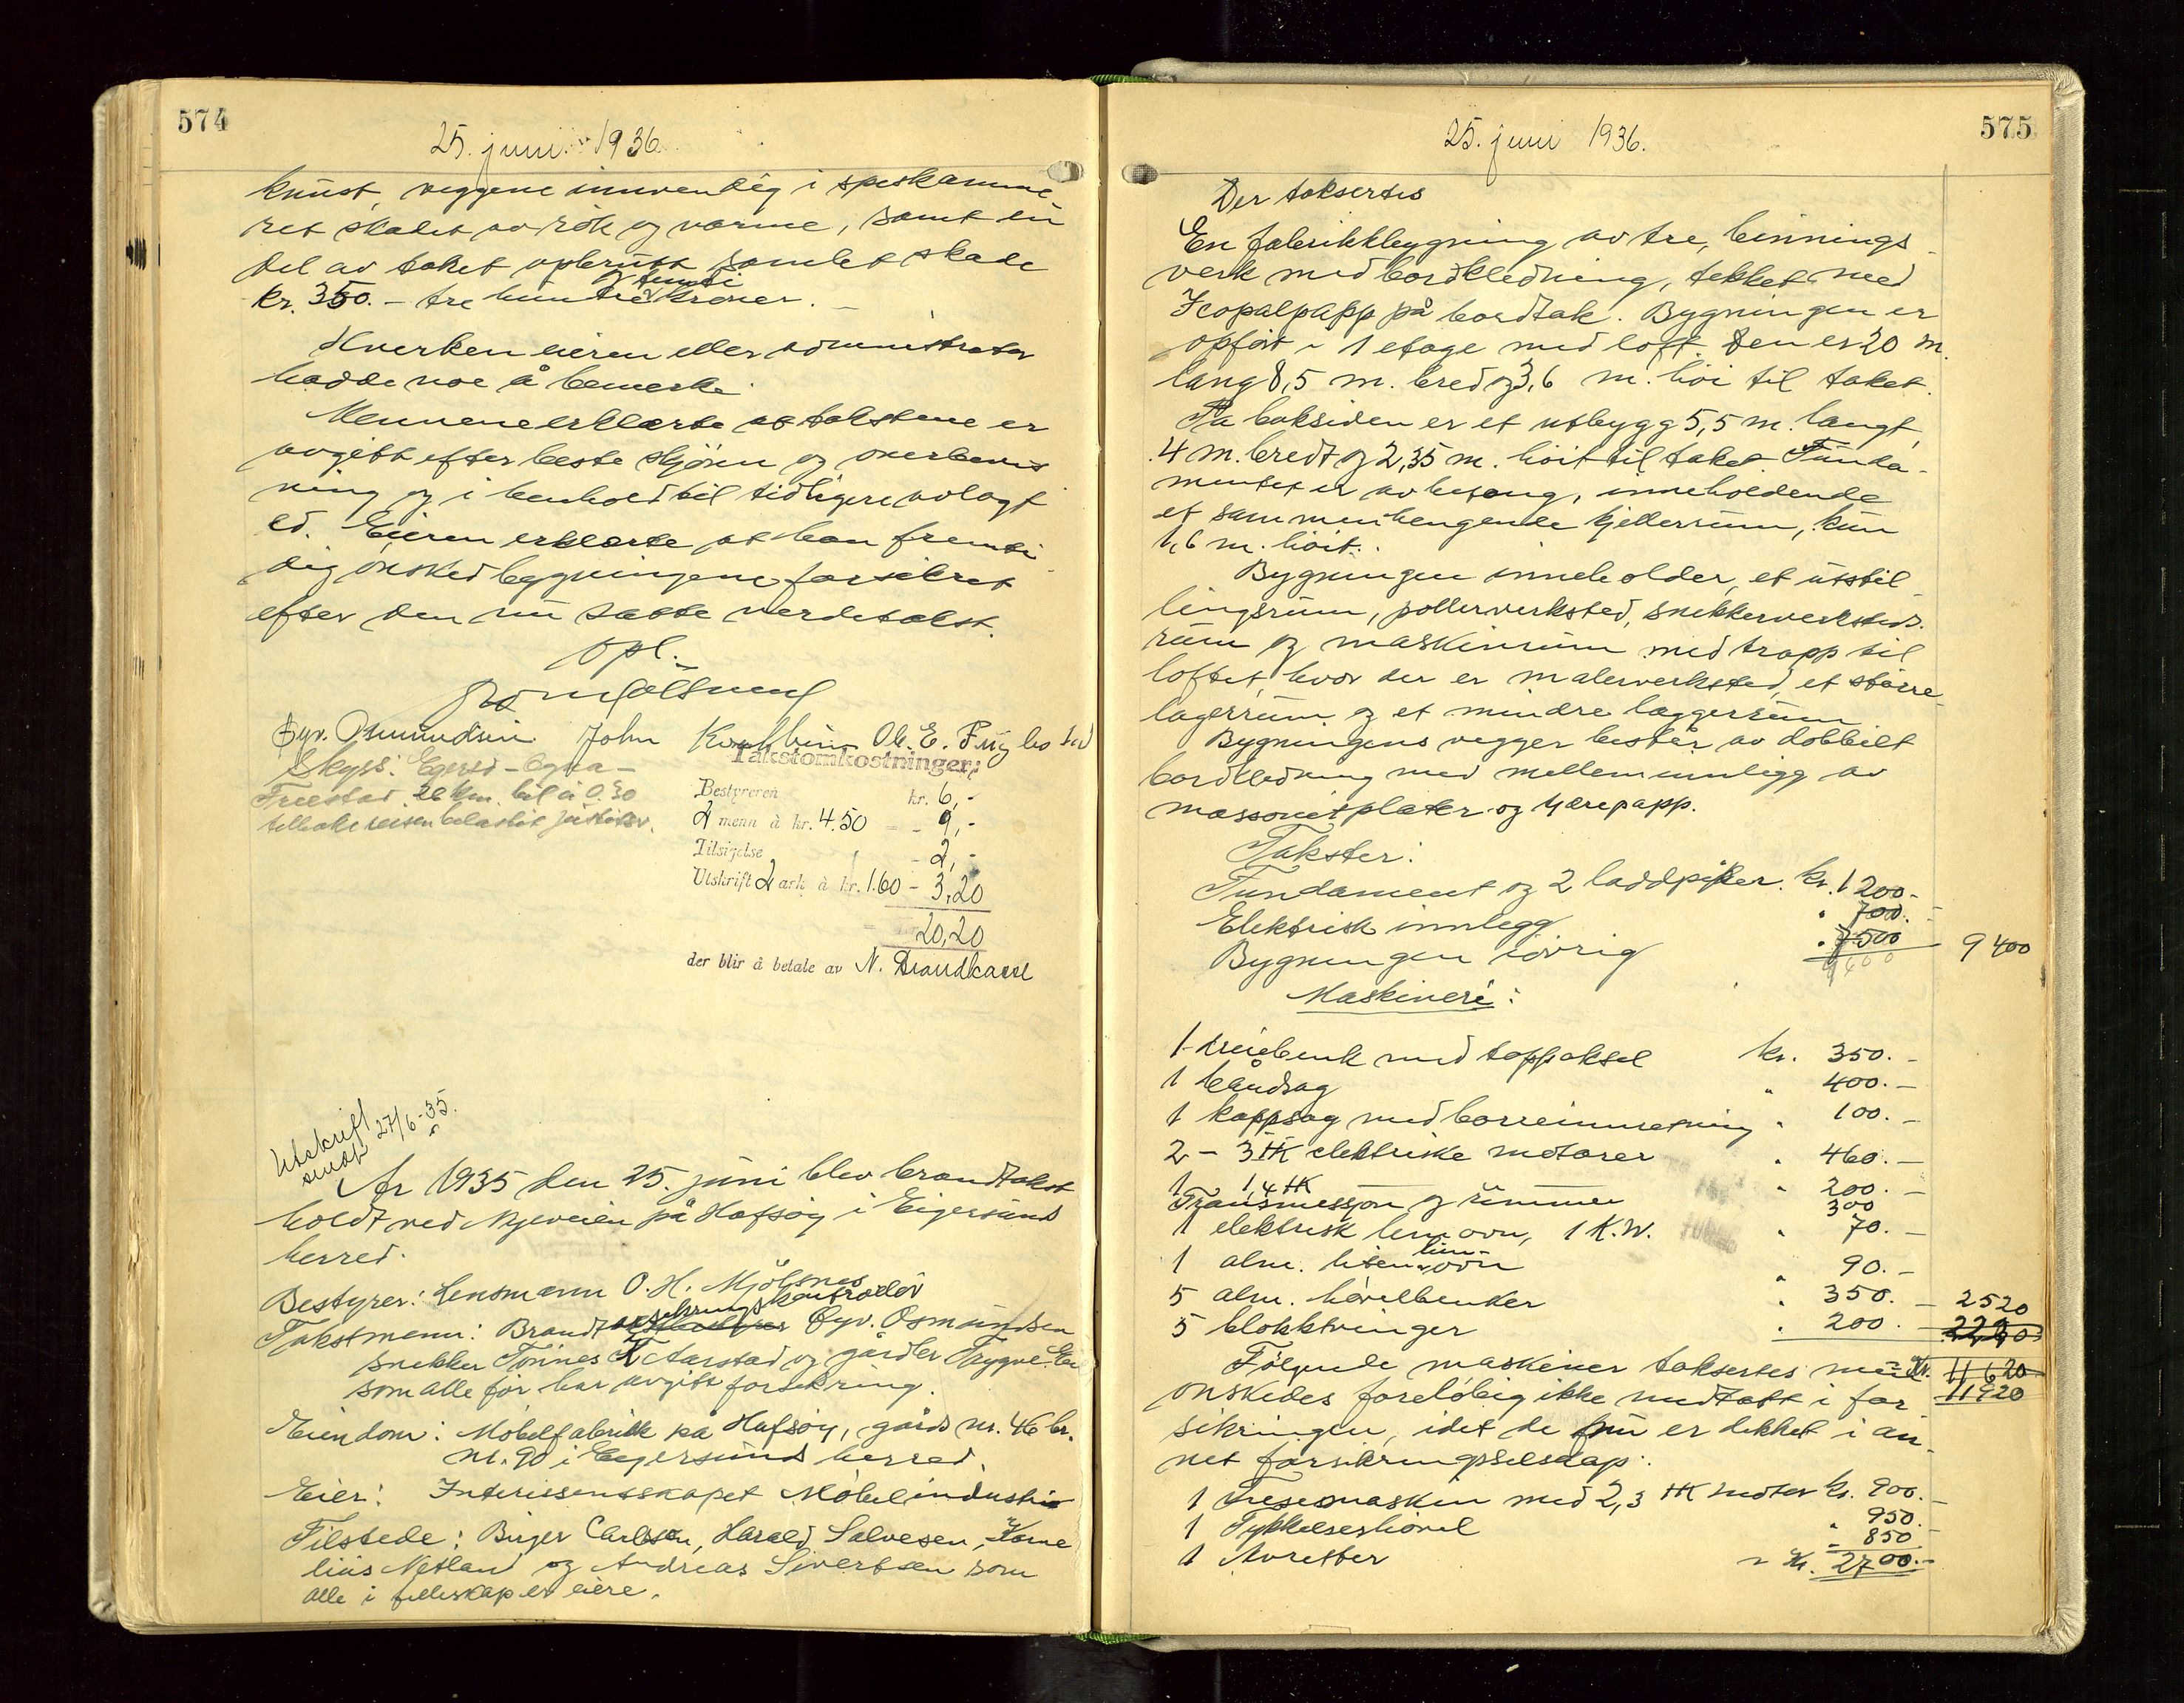 574
25. juni 1936.
knust, veggene innvendig i spiskamme
ret skadet av røk og varme, samt en
del av taket opbrutt samlet skade
og femti
kr. 350.- tre hundre kroner. -
Hverken eieren eller administrator
hadde noe å bemerke.
Mennene erklærte at takstene er
avgitt efter beste skjønn og overbevis
ning og i henhold til tidligere avlagt
ed. Eieren erklærte at han fremti
dig ønsked bygningene forsikret
efter den nu satte verdetakst.
Opl.
Øyv. Osmundsen John Ole. E. Fuglestad
Skyss: Egersd - Ogna -
26 km. bil à 0.30
tilbakereisen belastet justisv.
Takstomkostninger:
Bestyreren kr. 6,-
2 menn à kr. 4.50 - 9,-
Tilsigelse - 2,-
Utskrift 2 ark à kr. 1.60 - 3,20
20,20
der blir å betale av N. Brandkasse
Utskrift
sendt 27/6-35.
År 1935 den 25. juni blev brandtakst
holdt ved Nyeveien på Hafsøy i Eigersund
herred.
Bestyrer: Lensmann O. H. Mjølsnes
sikringskontrolør
Takstmenn: Brandt Øyv. Osmundsen
snekker Tønnes T Aarstad og gårdbr Trygve Eie
som alle før har avgitt forsikring.
Eiendom: Møbelfabrikk på Hafsøy, gårds nr. 46 br.
nr. 90 i Eigersund herred.
Eier: Interissentskapet Møbelindustri
Tilstede: Birger Carlsen, Harald Salvesen, Korne
lius Netland og Andreas Sivertsen som
alle i felleskap er eiere.
575
25. juni 1936.
Der taksertes
En fabrikkbygning av tre, binnings
verk med bordkledning, tekket med
Icopalpapp på bordtak. Bygningen er
opført i 1 etage med loft. Den er 20 m.
lang 8,5 m. bred og 3,6 m. høi til taket.
På baksiden er et utbygg 5,5 m. langt,
4 m. bredt og 2,35 m. høit til taket. Funda-
mentet er av betong, inneholdende
et sammenhengende kjellerrum, kun
1,6 m. høit.
Bygningen inneholder et utstil
lingsrum, pollerverksted, snekkerverksteds.
rum og maskinrum med trapp til
loftet, hvor der er malerverksted, et større
lagerrum og et mindre laggerrum.
Bygningens vegger består av dobbelt
bordkledning med melleminnlegg av
massonitplater og tjærepapp.
Takster:
Fundament og 2 laddpiper. kr. 1200.-
Elektrisk innlegg " 700.-
Bygningen iøvrig " 7500 - 9400
9400
Maskineri:
1 dreiebenk med toppaksel kr. 350.-
1 båndsag " 400.-
1 kappsag med borreinnretning " 100.-
2 - 3 HK elektriske motorer " 460.-
1 1,4 HK " 200.-
Transmessjon og rimmer 300
1 elektrisk limovn, 1 K.W. " 70.-
lim-
1 alm. ovn " 90.-
5 alm. høvelbenker " 350. - 2520
5 blokktvinger " 200. - 2220
Følgende maskiner taksertes men kr. 11620
ønskedes foreløbig ikke medtatt i for 11920
sikringen, idet de nu er dekket i an-
net forsikringsselskap:
1 fresemaskin med 2,3 HK motor kr. 900.-
1 Tykkelseshøvel " 950.-
1 Avretter " 850
kr. 2700.-